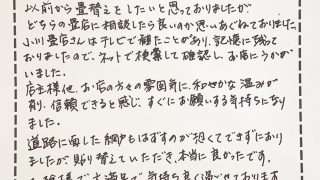 以前から畳替えをしたいと思っておりましたが
どちらの畳店に相談したら良いのか思いあぐねておりました。
小川畳店さんはテレビで観たことがあり、記憶に残って
おりましたので、ネットで検索して確認し、お店にうかが
いました。
店主様他、お店の方々の雰囲気に、和やかな温みが
有り、信頼できると感じ、すぐにお願いする気持ちになり
ました。
道路に面した網戸もはずすのが恐くてできずにおり
ましたが、貼り替えていただき、本当に良かったです。
様で大満足で気持ち良く過ごせております